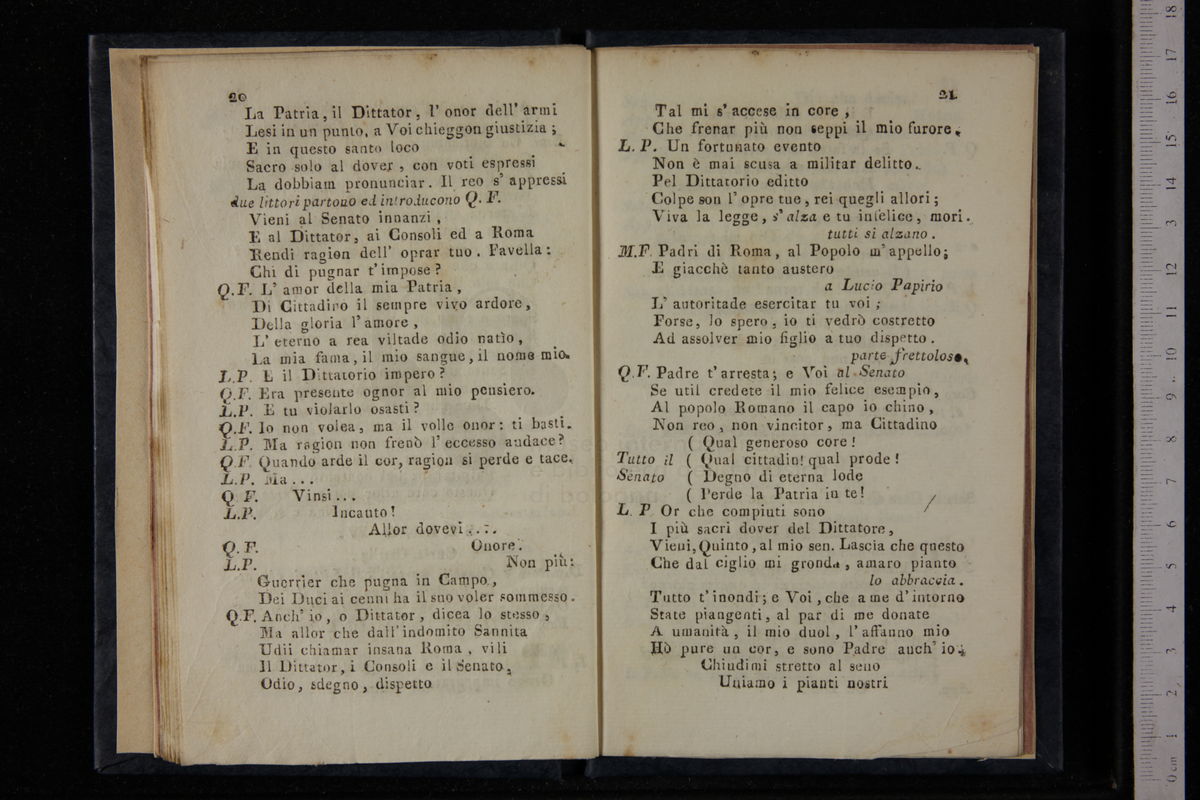 20
La Patria, il Dittator, l' onor dell' armi
Lesi in un punto, a Voi chieggon giustizia;
E in questo santo loco
Sacro solo al dover, con voti espressi
La dobbiam pronunciar. Il reo s' appressi
due littori partono ed introducono Q. F.
Vieni al Senato innanzi,
E al Dittator, ai Consoli ed a Roma
Rendi ragion dell' oprar tuo. Favella:
Chi di pugnar t' impose?
Q.F. L' amor della mia Patria,
Di Cittadino il sempre vivo ardore,
Della gloria l' amore,
L' eterno a rea viltade odio natìo,
La mia fama, il mio sangue, il nome mio.
L.P. E il Dittatorio impero?
Q.F. Era presente ognor al mio pensiero.
L.P. E tu violarlo osasti?
Q.F. Io non volea, ma il volle onor: ti basti.
L.P. Ma ragion non frenò l' eccesso audace?
Q.F. Quando arde il cor, ragion si perde e tace.
L.P. Ma...
Q F. Vinsi...
L.P. Incauto!
Allor dovevi...
Q.F. Onore.
L.P. Non più:
Guerrier che pugna in Campo,
Dei Duci ai cenni ha il suo voler sommesso.
Q.F. Anch' io, o Dittator, dicea lo stesso,
Ma allor che dall' indomito Sannita
Udii chiamar insana Roma, vili
Il Dittator, i Consoli e il Senato,
Odio, sdegno, dispetto
21
Tal mi s' accese in core,
Che frenar più non seppi il mio furore.
L. P. Un fortunato evento
Non è mai scusa a militar delitto.
Pel Dittatorio editto
Colpe son l' opre tue, rei quegli allori;
Viva la legge, s' alza e tu infelice, mori.
tutti si alzano.
M.F. Padri di Roma, al Popolo m' appello;
E giacchè tanto austero
a Lucio Papirio
L' autoritade esercitar tu voi;
Forse, lo spero, io ti vedrò costretto
Ad assolver mio figlio a tuo dispetto.
parte frettoloso.
Q.F. Padre t' arresta; e Voi al Senato
Se util credete il mio felice esempio,
Al popolo Romano il capo io chino,
Non reo, non vincitor, ma Cittadino
( Qual generoso core!
Tutto il ( Qual cittadin! qual prode!
Senato ( Degno di eterna lode
( Perde la Patria in te!
L. P Or che compiuti sono
I più sacri dover del Dittatore,
Vieni, Quinto, al mio sen. Lascia che questo
Che dal ciglio mi gronda, amaro pianto
lo abbraccia.
Tutto t' inondi; e Voi, che a me d' intorno
State piangenti, al par di me donate
A umanità, il mio duol, l' affanno mio
Hò pure un cor, e sono Padre anch' io.
Chiudimi stretto al seno
Uniamo i pianti nostri
0 cm 1 2 3 4 5 6 7 8 9 10 11 12 13 14 15 16 17 18